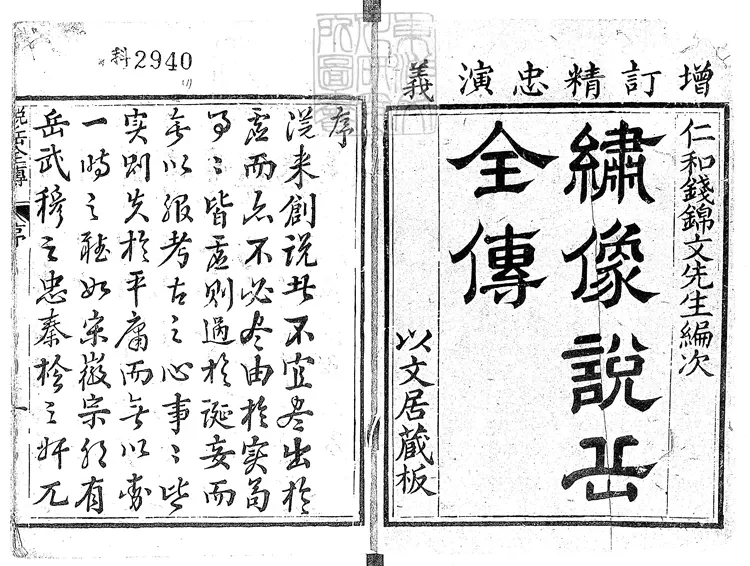 增訂精忠演義
仁和錢錦文先生編次
繡像說岳
全傳
以文居藏板
料2940
序
從来創說者不宜尽出於
虛而亦不必尽由於实苟
事々皆虛則過於誕妄而
無以服考古之心事々皆
实則失於平庸而無以動
一時之聴如宋徽宗朝有
岳武穆之忠秦檜之奸兀
說岳全傳 序